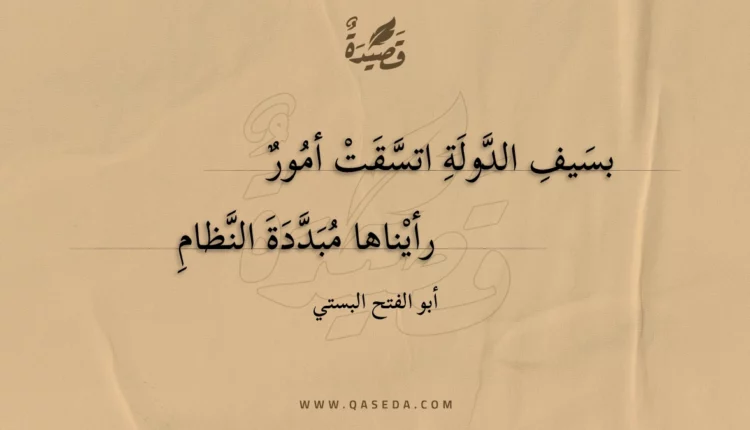 قَصِيدَةٌ
بسَيفِ الدَّولَةِ اتسَّقَتْ أمُورٌ
رأيْناها مُبَدَّدَةَ النَّظامِ
أبو الفتح البستي
WWW.QASEDA.COM